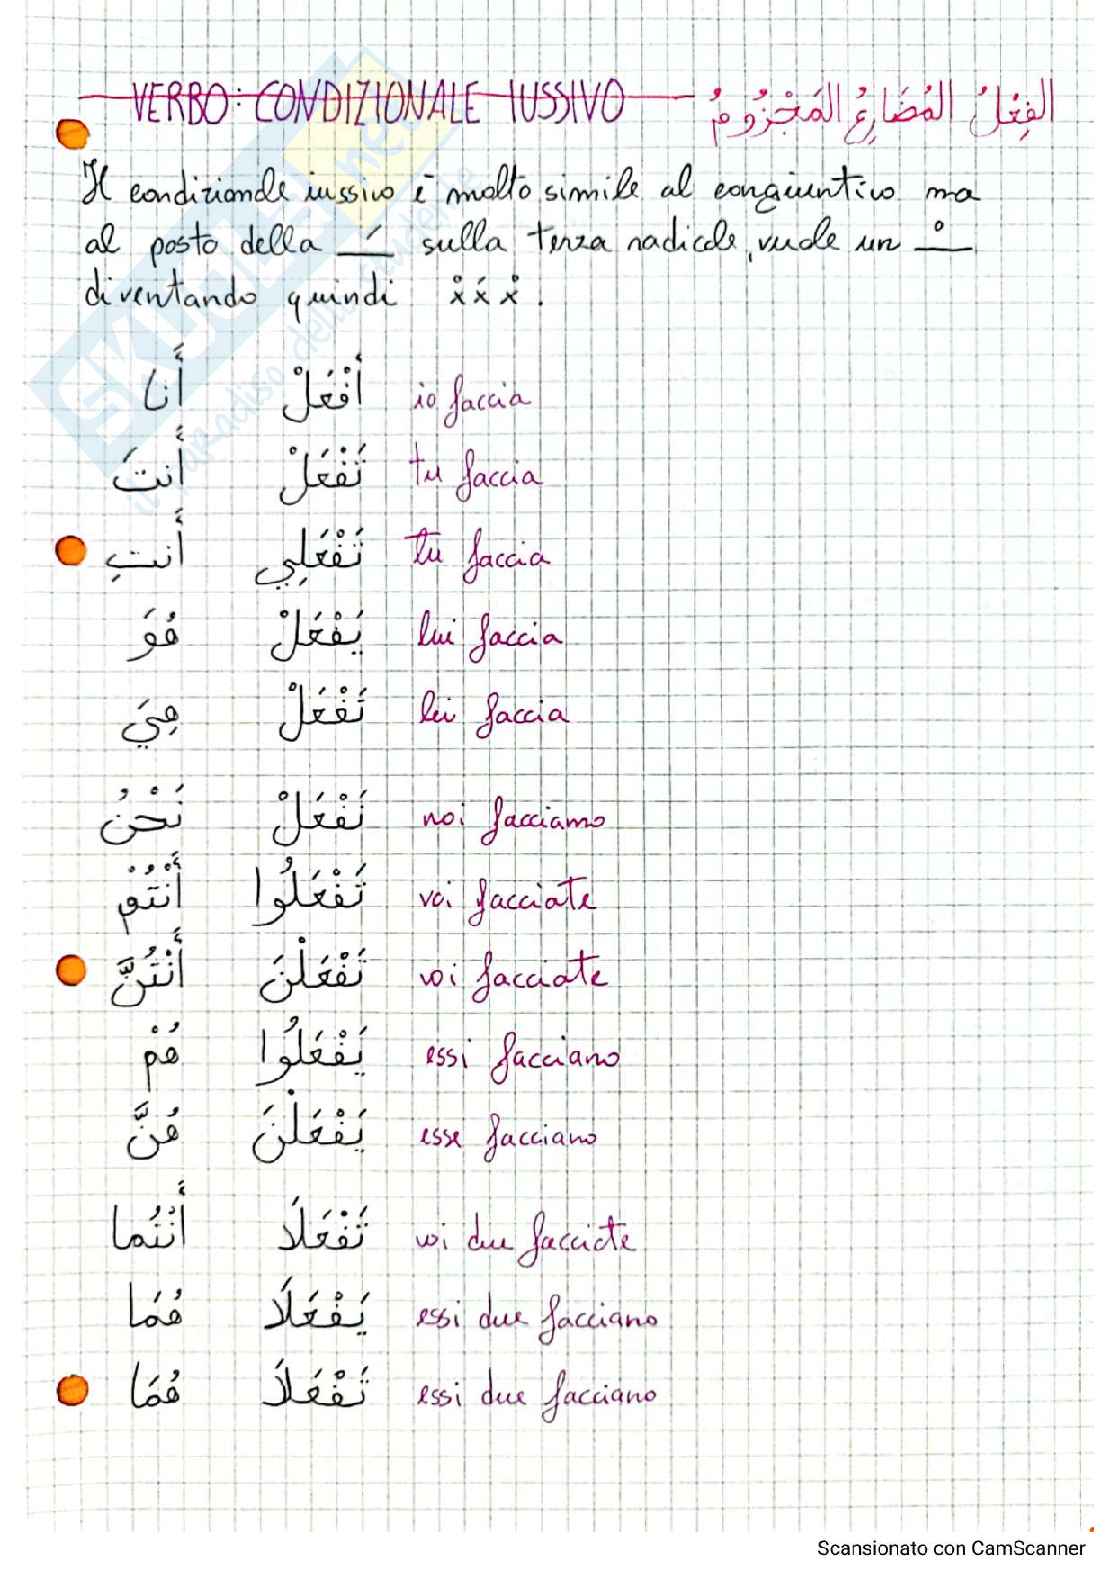 VERBO: CONDIZIONALE IUSSIVO الفِعْلُ المُضَارِعُ المَجْزُومُ
Il condizionale iussivo è molto simile al congiuntivo ma
al posto della َ sulla terza radicale, vuole un ْ
diventando quindi xْ xَ xْ.
أَنا أَفْعَلْ io faccia
أَنتَ تَفْعَلْ tu faccia
أَنتِ تَفْعَلِي tu faccia
هُوَ يَفْعَلْ lui faccia
هِيَ تَفْعَلْ lei faccia
نَحْنُ نَفْعَلْ noi facciamo
أَنْتُمْ تَفْعَلُوا voi facciate
أَنْتُنَّ تَفْعَلْنَ voi facciate
هُمْ يَفْعَلُوا essi facciano
هُنَّ يَفْعَلْنَ esse facciano
أَنْتُما تَفْعَلَا voi due facciate
هُمَا يَفْعَلَا essi due facciano
هُمَا تَفْعَلَا essi due facciano
Scansionato con CamScanner